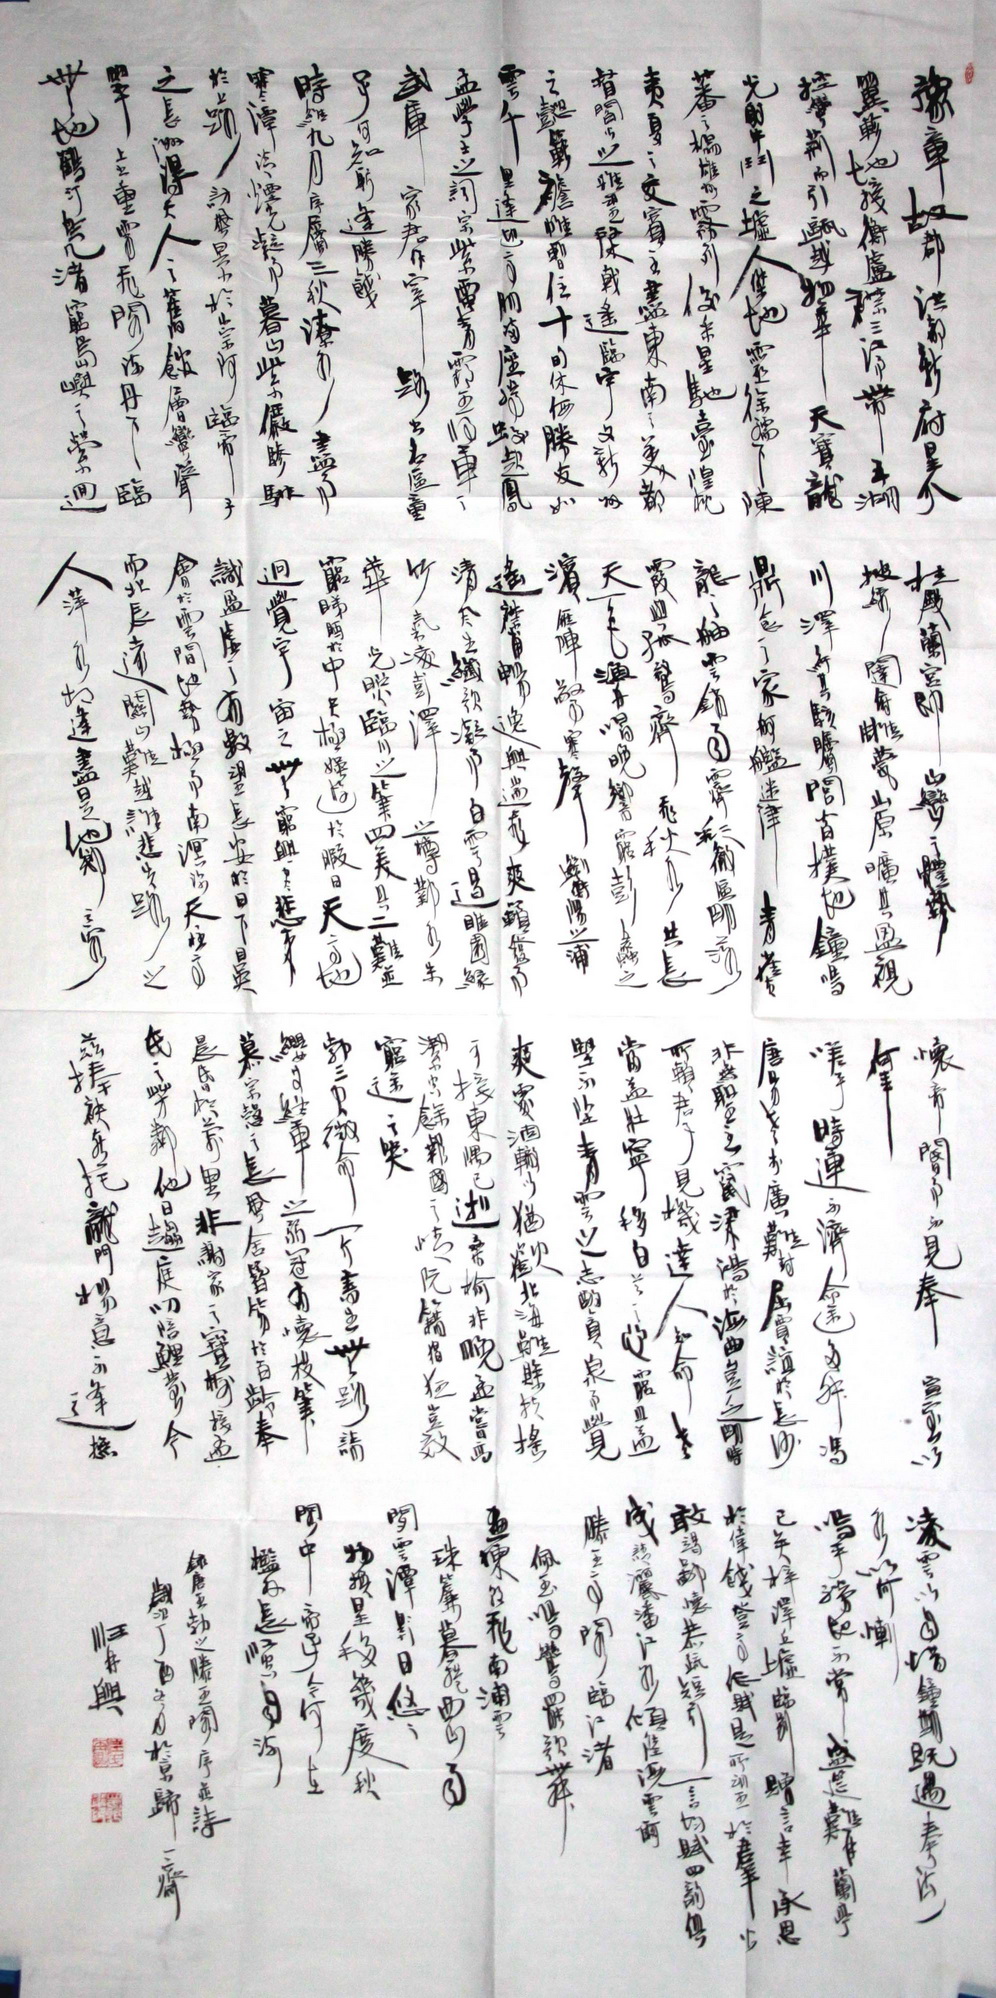 豫章故郡洪都新府星分
翼軫地接衡廬襟三江而帶五湖
控蠻荊而引甌越物華天寶龍
光射牛斗之墟人傑地靈徐孺下陳
蕃之榻雄州霧列俊采星馳臺隍枕
夷夏之交賓主盡東南之美都
督閻公之雅望棨戟遙臨宇文新州
之懿範襜帷暫住十旬休假勝友如
雲千里逢迎高朋滿座騰蛟起鳳
孟學士之詞宗紫電青霜王將軍之
武庫家君作宰路出名區童
子何知躬逢勝餞
時維九月序屬三秋潦水盡而
寒潭清煙光凝而暮山紫儼驂騑
於上路訪風景於崇阿臨帝子
之長洲得天人之舊館層巒聳
翠上出重霄飛閣流丹下臨
無地鶴汀鳧渚窮島嶼之縈迴
桂殿蘭宮即岡巒之體勢
披繡闥俯雕甍山原曠其盈視
川澤紆其駭矚閭閻撲地鐘鳴
鼎食之家舸艦迷津青雀黃
龍之舳雲銷雨霽彩徹區明落
霞與孤鶩齊飛秋水共長
天一色漁舟唱晚響窮彭蠡之
濱雁陣驚寒聲斷衡陽之浦
遙襟甫暢逸興遄飛爽籟發而
清風生纖歌凝而白雲遏睢園綠
竹氣凌彭澤之樽鄴水朱
華光照臨川之筆四美具二難並
窮睇眄於中天極娛遊於暇日天高地
迥覺宇宙之無窮興盡悲來
識盈虛之有數望長安於日下目吳
會於雲間地勢極而南溟深天柱高
而北辰遠關山難越誰悲失路之
人萍水相逢盡是他鄉之客
懷帝閽而不見奉宣室以
何年
嗟乎時運不濟命途多舛馮
唐易老李廣難封屈賈誼於長沙
非無聖主竄梁鴻於海曲豈乏明時
所賴君子見機達人知命老
當益壯寧移白首之心窮且益
堅不墜青雲之志酌貪泉而覺
爽處涸轍以猶歡北海雖賒扶搖
可接東隅已逝桑榆非晚孟嘗高
潔空餘報國之情阮籍猖狂豈效
窮途之哭
勃三尺微命一介書生無路請
纓等終軍之弱冠有懷投筆
慕宗愨之長風舍簪笏於百齡奉
晨昏於萬里非謝家之寶樹接孟
氏之芳鄰他日趨庭叨陪鯉對今
茲捧袂喜托龍門楊意不逢撫
凌雲以自惜鐘期既遇奏流
水以何慚
嗚乎勝地不常盛筵難再蘭亭
已矣梓澤丘墟臨別贈言幸承恩
於偉餞登高作賦是所望於群公
敢竭鄙懷恭疏短引一言均賦四韻俱
成請灑潘江各傾陸海云爾
滕王高閣臨江渚
佩玉鳴鸞罷歌舞
畫棟朝飛南浦雲
珠簾暮捲西山雨
閒雲潭影日悠悠
物換星移幾度秋
閣中帝子今何在
檻外長江空自流
錄唐王勃之滕王閣序並詩
歲次丁酉冬月於京歸一齋
汪井興